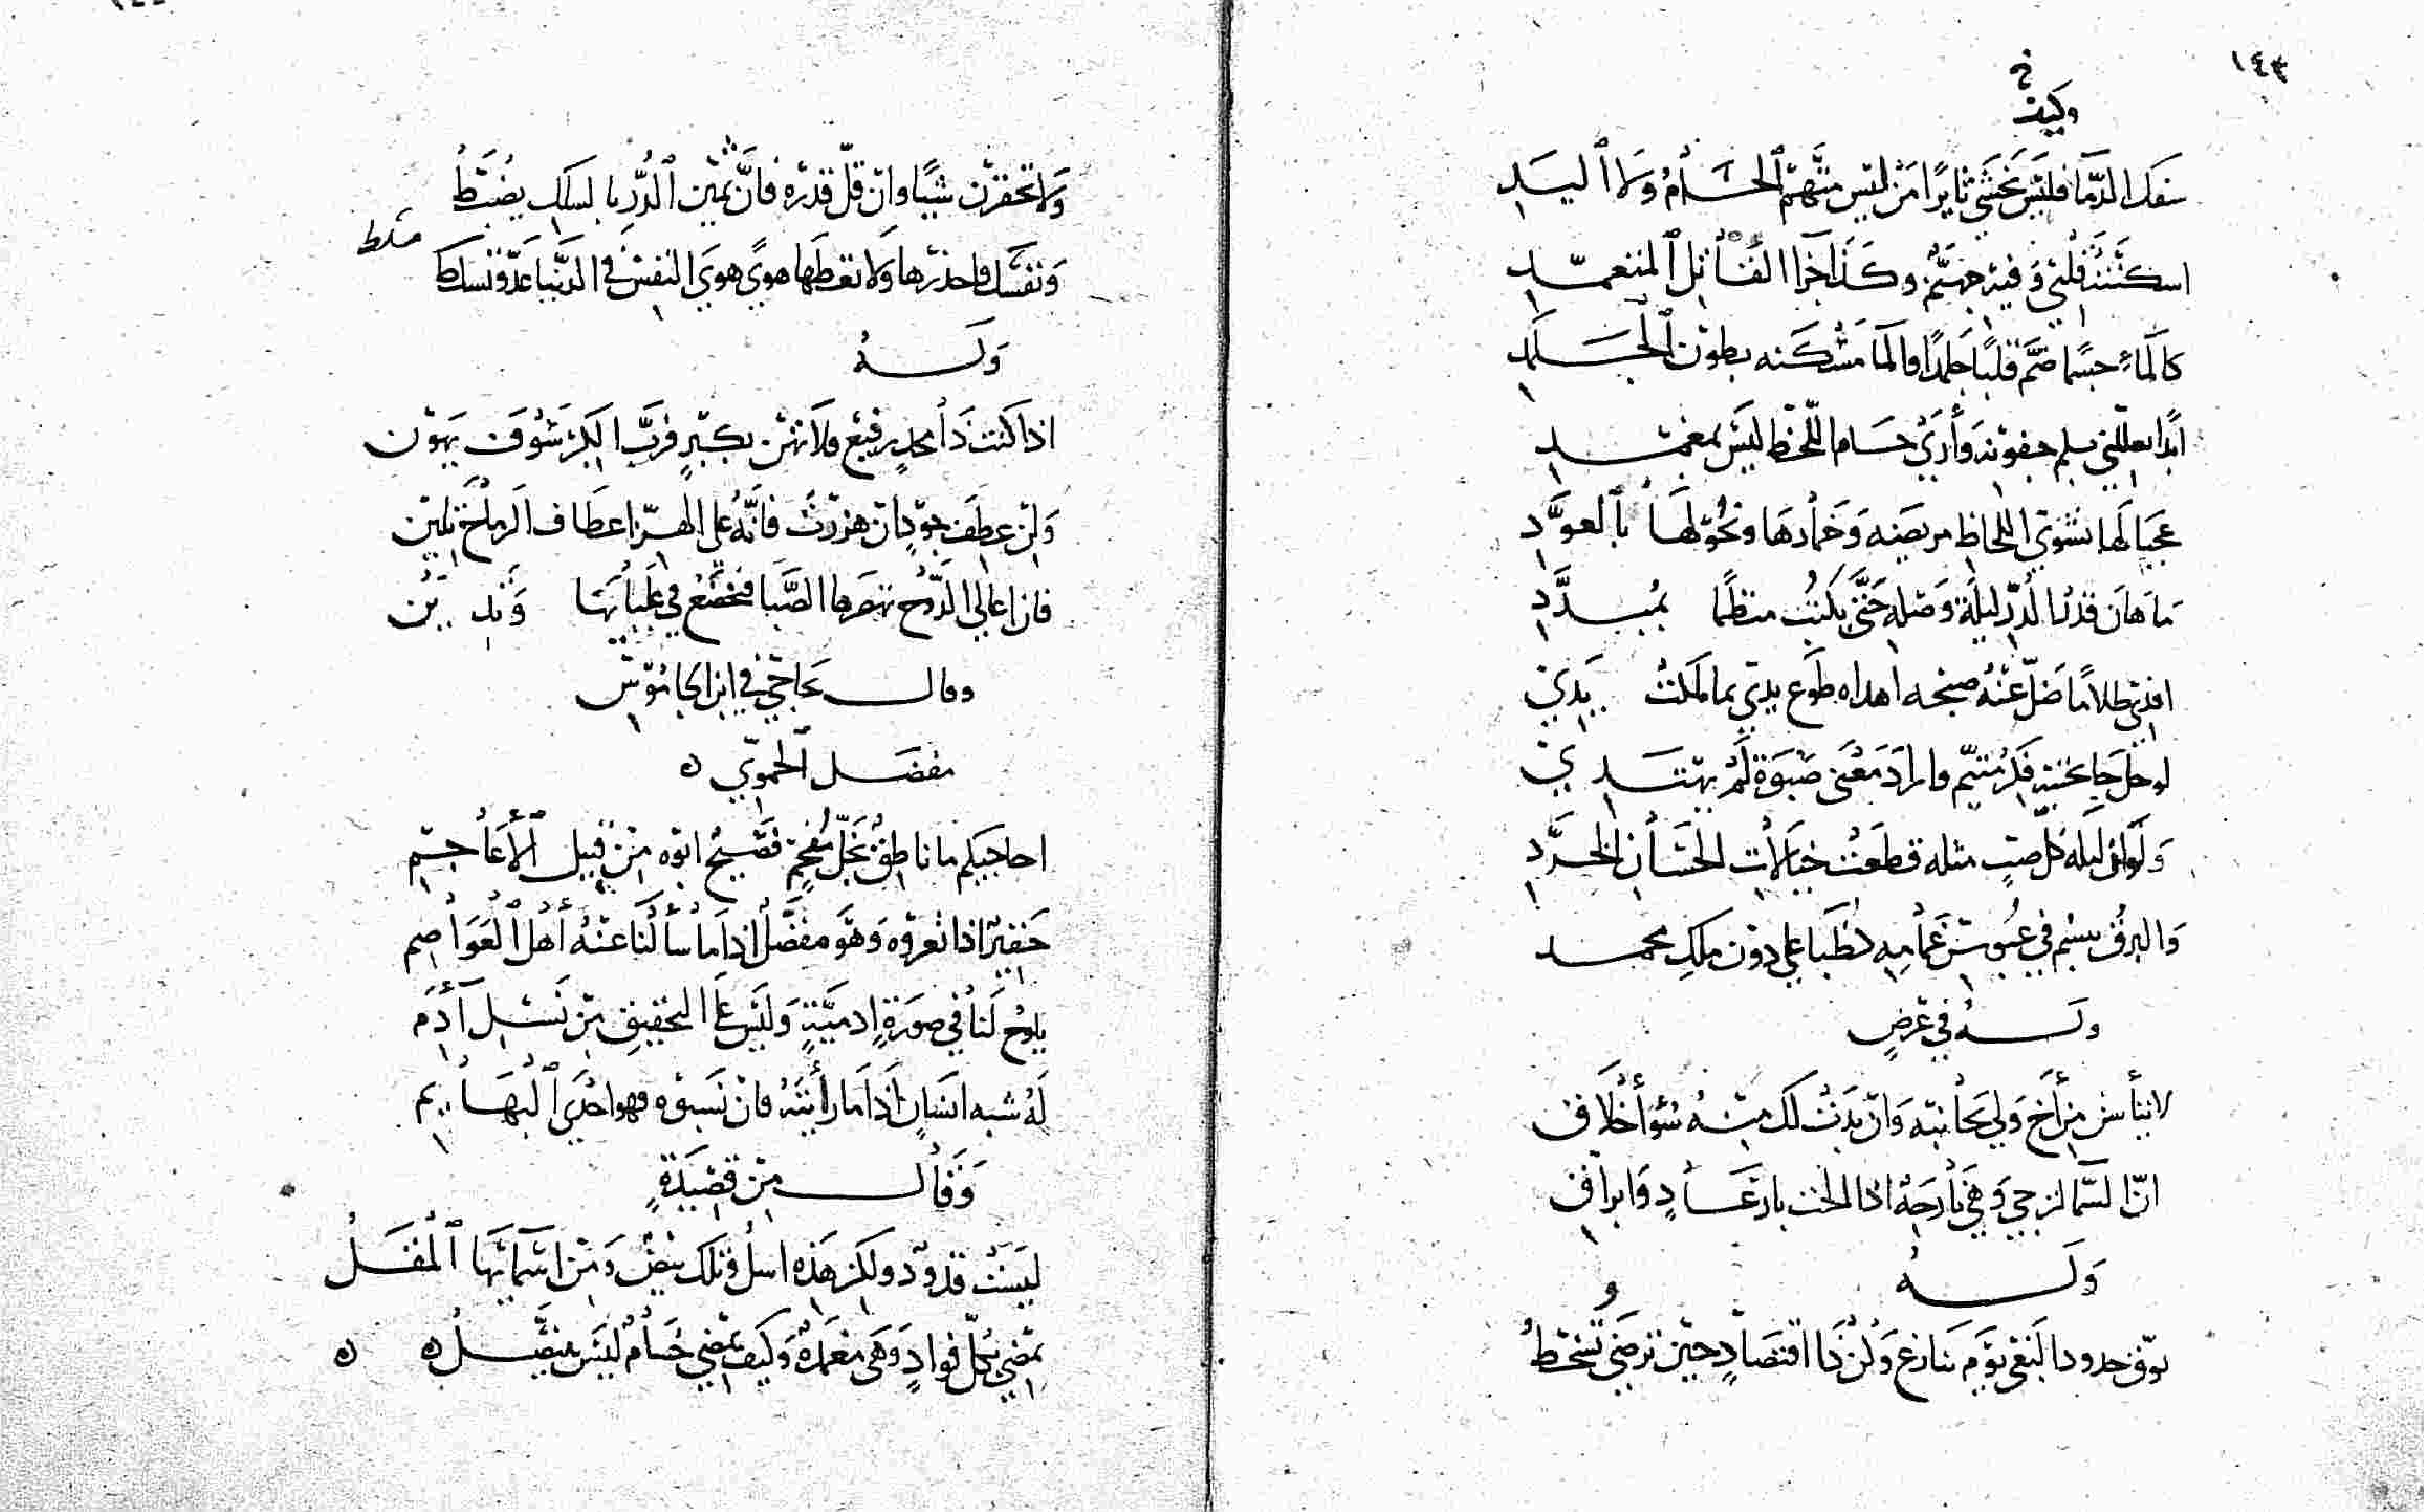 ١٤٣
وكيف
خ
سفك الدما فليس يخشى ثايرًا من ليس منهم الحسام ولا اليد
اسكنته قلبي وفيه جهنم وكذا جزا القاتل المتعمد
كالماء جسما ضم قلبا جلمدا والما مسكنه بطون الجلمد
ابدا يعللني بسلم جفونه وأرى حسام اللحظ ليس بمغمد
عجبا لها نشوى اللحاظ مريضه وخمارها ونحولها بالعود
ما هان قدر الدر ليلة وصله حتى بكيت منظما بمبدد
افدى ظلاما ضل عنه صبحه اهداه طوع يدي بما ملكت يدي
لو حل جا بجنبه فكر متيم واراد معنى صبوة لم يهتدي
ولو ان ليله كل صب مثله قطعت خيالات الحسان الخرد
والبرق يبسم في عبوس غمامه كظبا علي دون ملك محمد
وله في غرض
لا تيأس من أخ ولي بجانبه وان بدت لك منه سوأ أخلاق
ان السما لترجي وهي نازحه اذا الحت بارعاد وابراق
وله
توق حدود البغي يوم تنازع وكن ذا اقتصاد حين ترضى وتسخط
ولا تحقرن شيئا وان قل قدره فان ثمين الدر بالسلك يضبط
ونفسك فاحذرها ولا تعطها هوى هوى النفس في الدنيا عدو تسلط
مسلط
وله
اذا كنت ذا مجد رفيع فلا تهن بكبر فرب الكبر سوف يهون
ولن عطف جود ان هززت فانه على الهز اعطاف الرماح تلين
فان اعالي الدوح تهصرها الصبا فتخضع في عليائها وتدين
وقال يحاجي في ابن الجاموس
مفضل الحموي ه
احاجيكم ما ناطق نجل مفحم فصيح ابوه من قبيل الأعاجم
حقير اذا تعزوه وهو مفضل اذا ما سألنا عنه أهل العواصم
يلوح لنا في صورة ادمية وليس على التحقيق من نسل آدم
له شبه انسان اذا ما رأيته فان نسبوه فهو احدى البهايم
وقال من قصيدة
ليست قدود ولكن هذه اسل وتلك بيض ومن اسمائها المقل
تمضي بكل فواد وهي مغمدة وكيف تمضي حسام ليس ينتضل ه ه